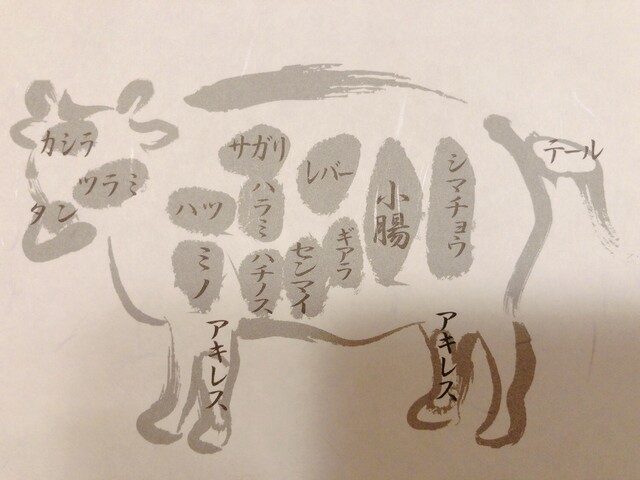 カシラ
ツラミ
タン
サガリ
ハツ
ハラミ
レバー
ミノ
ハチノス
センマイ
ギアラ
小腸
シマチョウ
テール
アキレス
アキレス